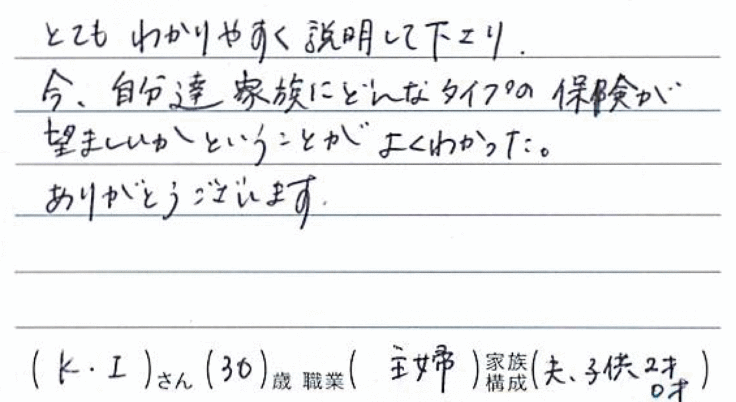 とてもわかりやすく説明して下さり.
今、自分達家族にどんなタイプの保険が
望ましいかということがよくわかった。
ありがとうございます.
(K・I)さん(30)歳 職業(主婦)家族構成(夫、子供、2才 0才)